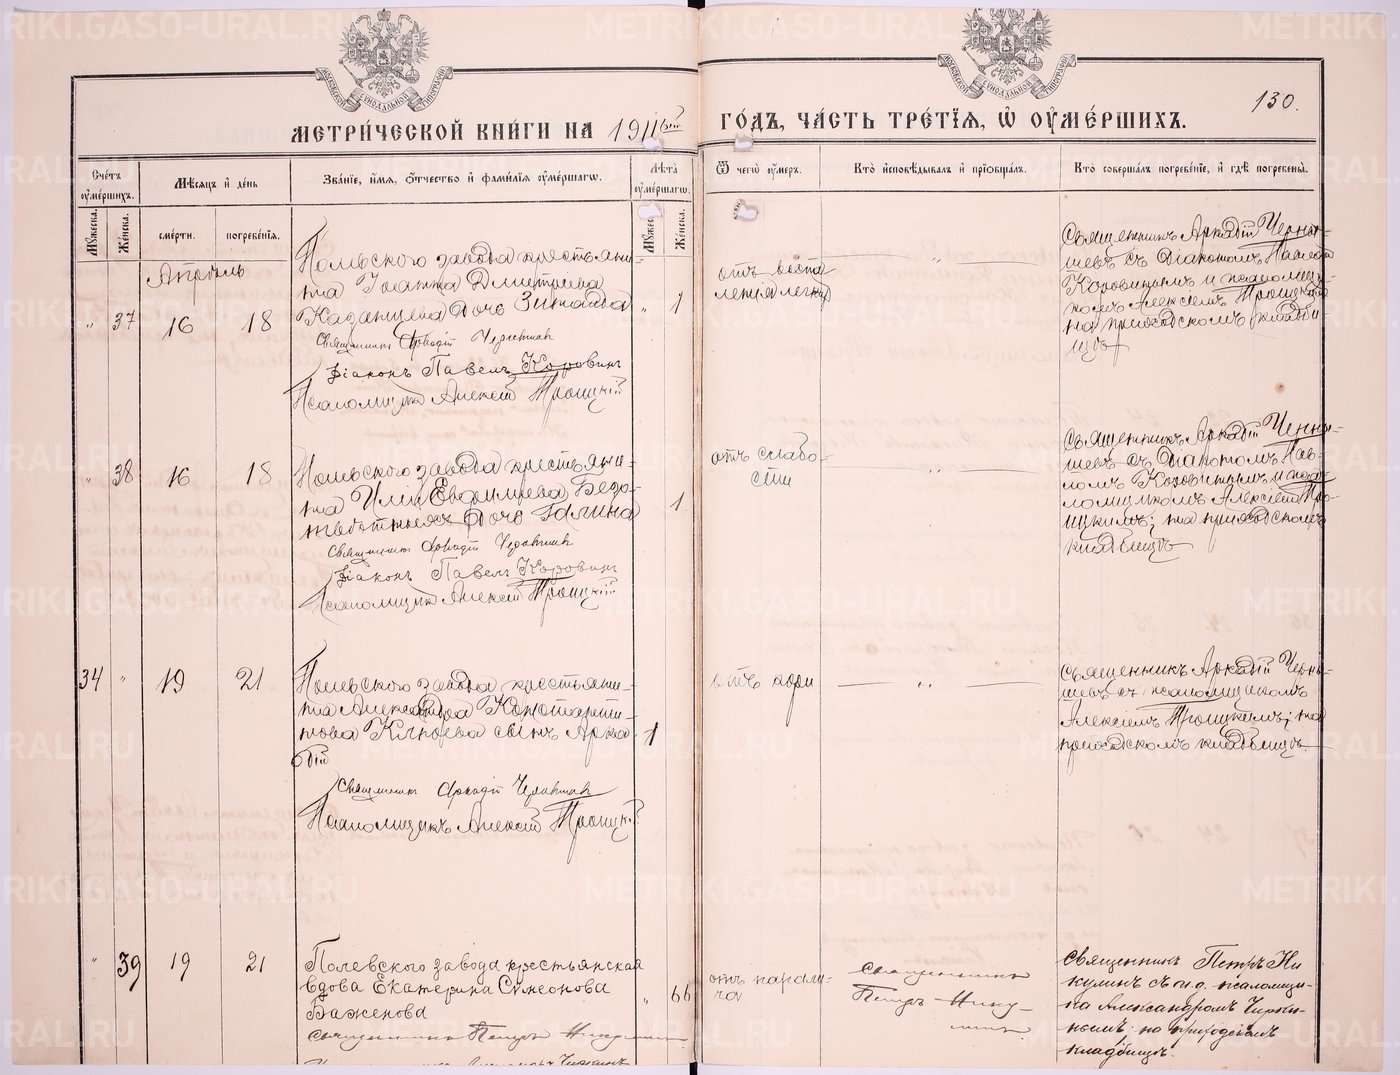 МЕТРИ́ЧЕСКОЙ КНИ́ГИ НА 1911ый
ГО́ДЪ, ЧА́СТЬ ТРЕ́ТІѦ, Ѽ ОУМЕ́РШИХЪ.
130.
Сче́тъ оуме́ршихъ.
Мѣ́сѧцъ и҆ де́нь
Зва́нїе, и҆́мѧ, ѻ҆́тчество и҆ фами́лїѧ оуме́ршагѡ.
Лѣ́та оуме́ршагѡ.
Ѿ чегѡ̀ оу́меръ.
Кто̀ и҆сповѣ́дывалъ и҆ прїѡбща́лъ.
Кто̀ соверша́лъ погребе́нїе, и҆ гдѣ̀ погребены̀.
Мꙋ́жеска.
Же́нска.
сме́рти.
погребе́нїѧ.
Мꙋ́жеск
Же́нска.
Апрѣль
" 37 16 18
Полевского завода крестьяни-
на Іоанна Дмитріева
Каданцева дочь Зинаида
Священникъ Аркадій Чернышев
Діаконъ Павелъ Коровинъ
Псаломщикъ Алексій Троицкій
" 1
отъ воспа-
ленія легких
— " —
Священникъ Аркадій Черны-
шевъ съ діакономъ Павломъ
Коровинымъ и псаломщи-
комъ Алексіемъ Троицкимъ
на приходскомъ кладби
щѣ
" 38 16 18
Полевского завода крестьяни-
на Иліи Евфиміева
дочь Галина
Священникъ Аркадій Чернышев
Діаконъ Павелъ Коровинъ
Псаломщикъ Алексій Троицкій
1
отъ слабо-
сти
— " —
Священникъ Аркадій Черны-
шевъ съ діакономъ Пав-
ломъ Коровинымъ и псал
ломщикомъ Алексіемъ Тро-
ицкимъ; на приходскомъ
кладбищѣ
34 " 19 21
Полевского завода крестьяни-
на Александра
Клюева сынъ Арка-
дій
Священникъ Аркадій Чернышев
Псаломщикъ Алексій Троицкій
1
отъ кори
— " —
Священникъ Аркадій Черны-
шевъ съ псаломщикомъ
Алексіемъ Троицкимъ; на
приходскомъ кладбищѣ
" 39 19 21
Полевского завода крестьянская
вдова Екатерина Симеонова
Баженова
священникъ Петръ Никулин
" 66
отъ парали-
ча
священникъ
Петръ Нику-
линъ
священникъ Петръ Ни
кулинъ съ и.д. псаломщи-
ка Александромъ
на приходскомъ
кладбищѣ.
METRIKI.GASO-URAL.RU